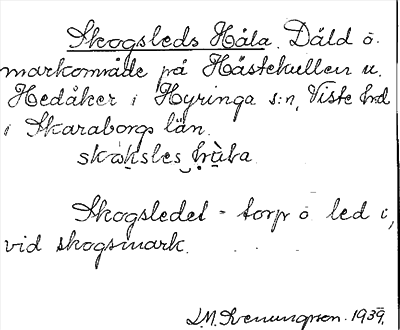 Skogsleds Håla. Däld o.
markområde på Hästekullen u.
Hedåker i Hyringa s:n, Viste hd
i Skaraborgs län.
Skogsledet - torp o led i,
vid skogsmark.
1939.